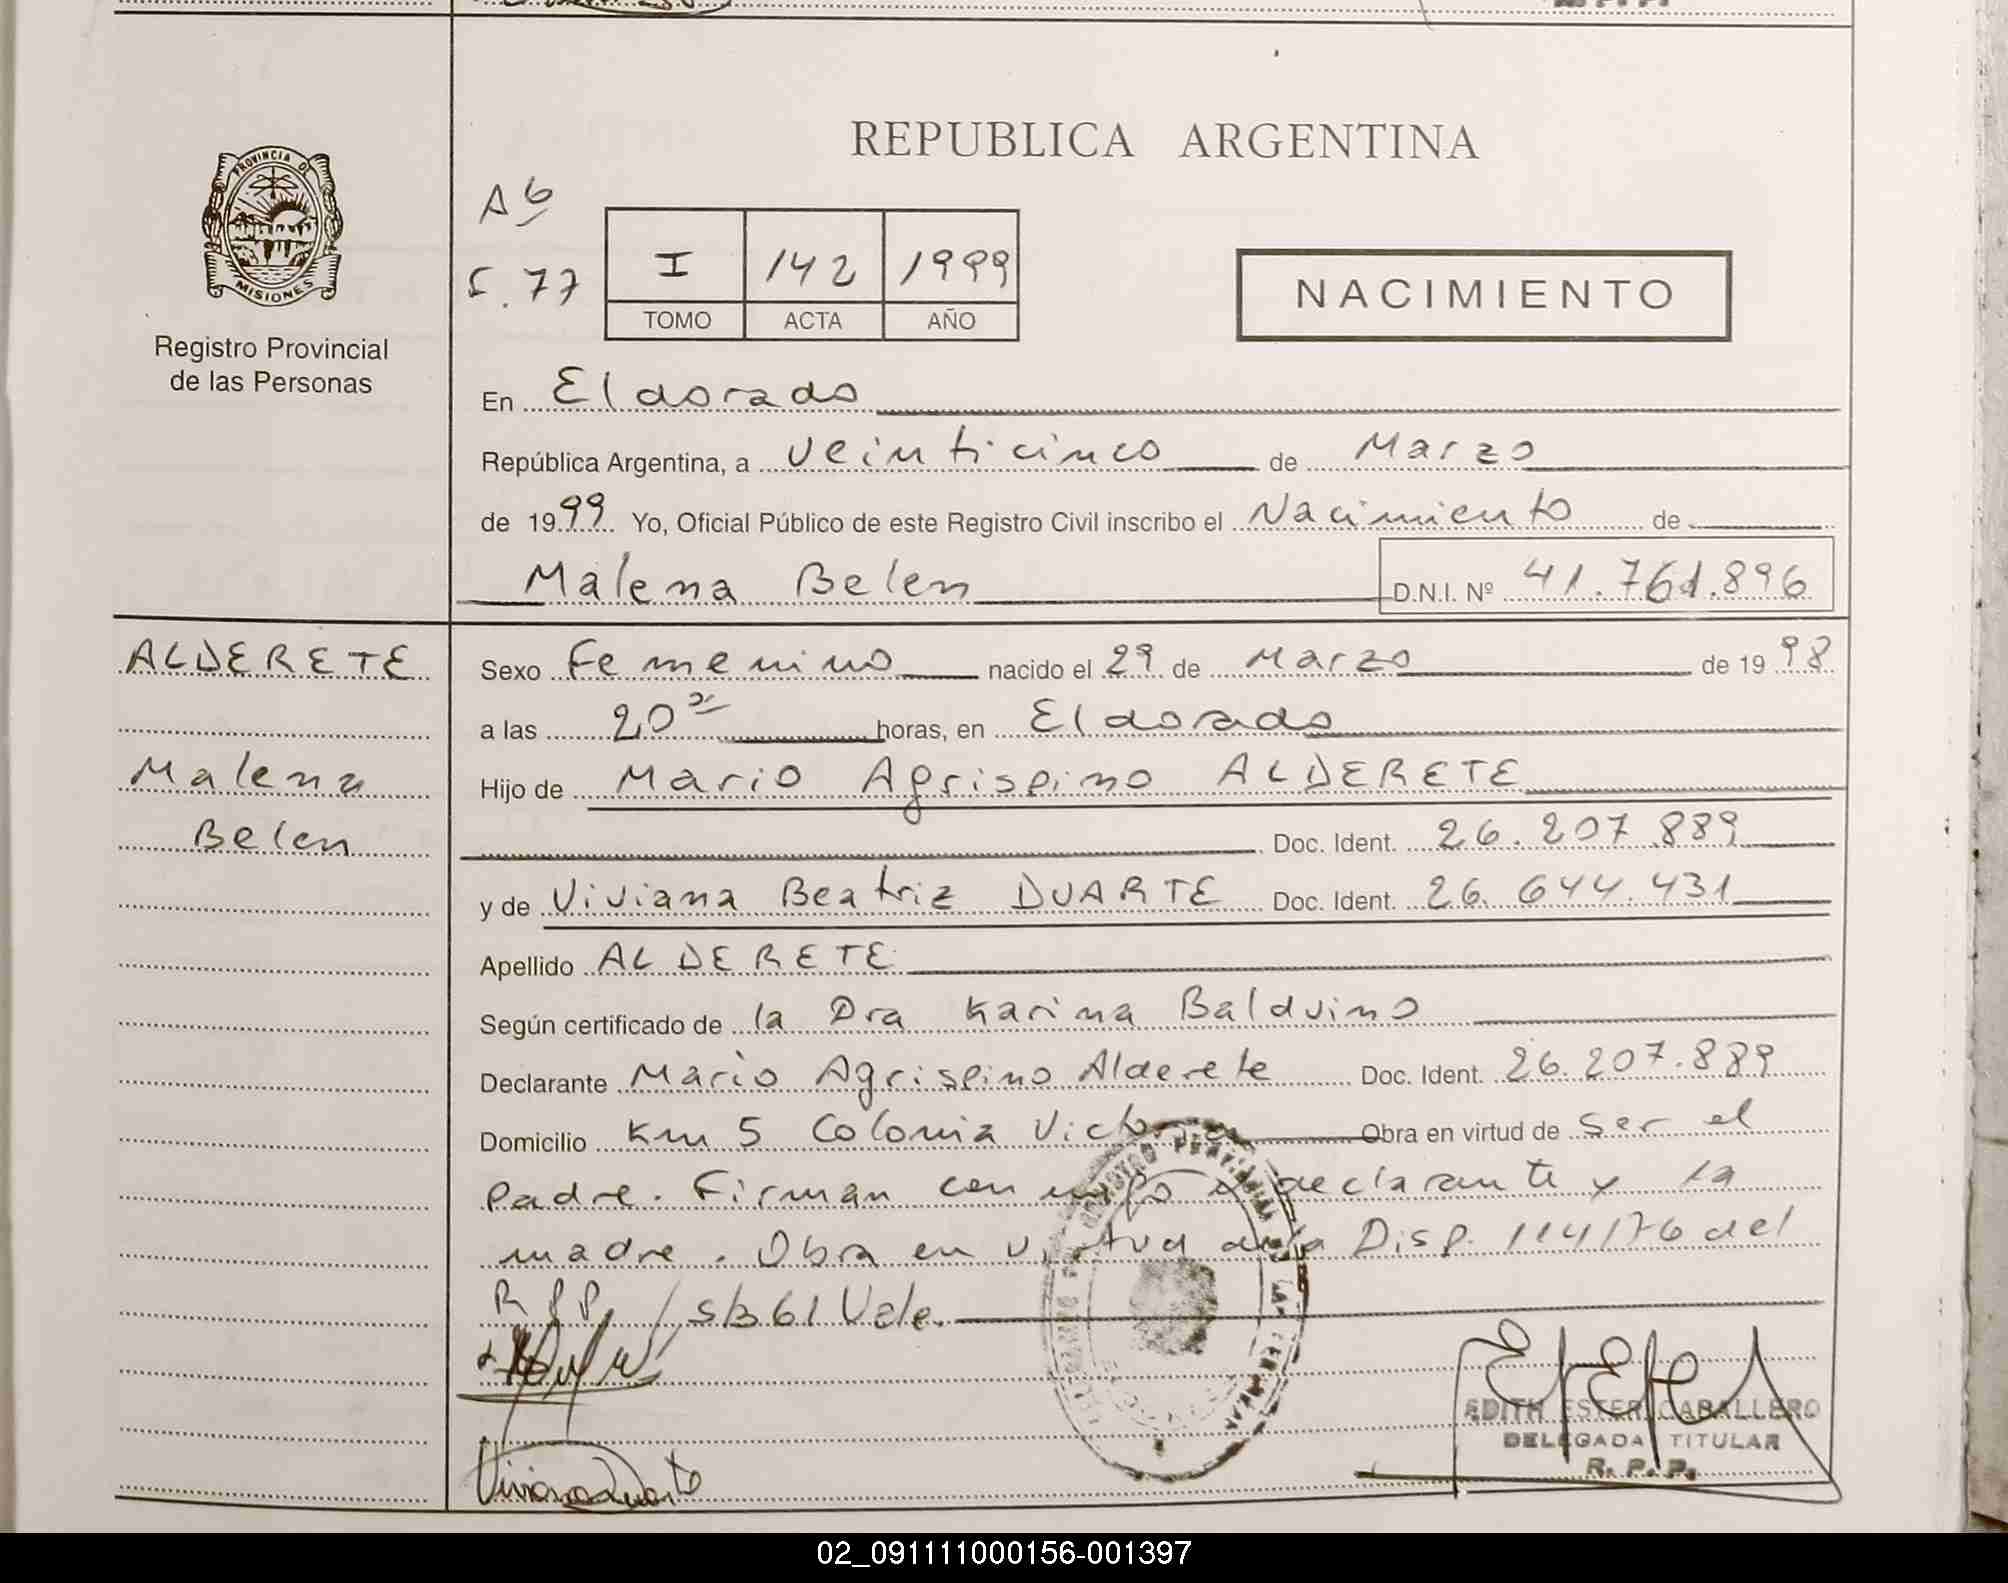 PROVINCIA DE
MISIONES
Registro Provincial
de las Personas
REPUBLICA ARGENTINA
A6
F. 77
I 142 1999
TOMO ACTA AÑO
NACIMIENTO
En Eldorado
República Argentina, a veinticinco de Marzo
de 1999 Yo, Oficial Público de este Registro Civil inscribo el Nacimiento de
Malena Belen D.N.I. Nº 41.761.896
ALDERETE
Malena
Belen
Sexo Femenino nacido el 29 de Marzo de 1998
a las 20 horas, en Eldorado
Hijo de Mario Agrispino ALDERETE
Doc. Ident. 26.207.889
y de Viviana Beatriz DUARTE Doc. Ident. 26.644.431
Apellido ALDERETE
Según certificado de la Dra Karina Balduino
Declarante Mario Agrispino Alderete Doc. Ident. 26.207.889
Domicilio Km 5 Colonia Victoria Obra en virtud de ser el
padre. Firman con migo el declarante y la
madre. Obra en virtud de la Disp. 114/76 del
R.P.P. / S/B 61 Vale.
Viviana Duarte
EDITH ESTER CABALLERO
DELEGADA TITULAR
R. P. P.
02_091111000156-001397